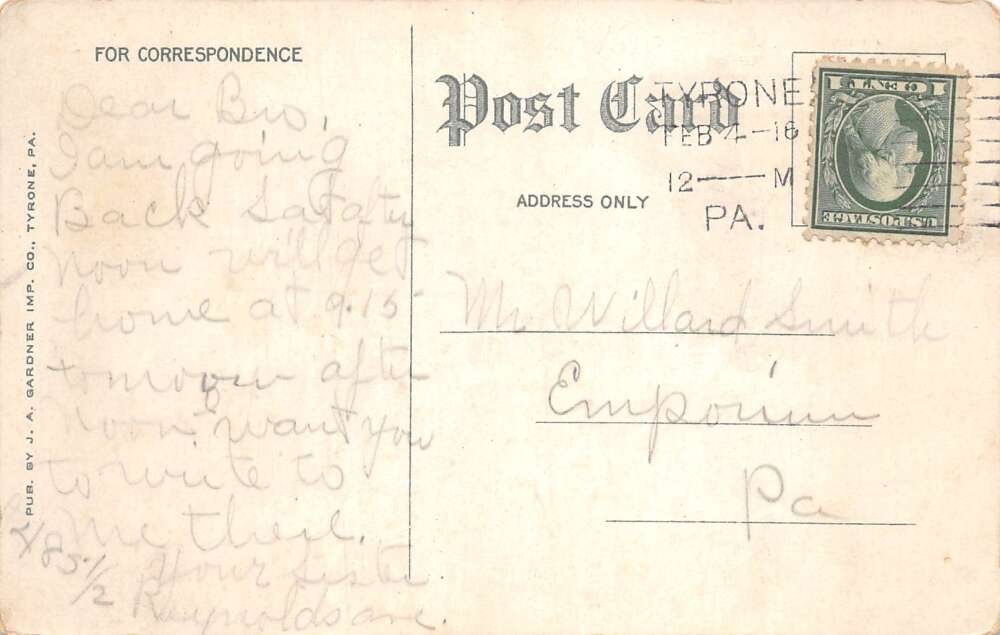 FOR CORRESPONDENCE
Dear Bro,
I am going
Back Satatur
Noon will get
home at 9.15
tomorrow after
Noon. want you
to write to
Me there.
Your Sister
85 1/2 Reynolds ave.
PUB. BY J. A. GARDNER IMP. CO., TYRONE, PA.
Post Card
ADDRESS ONLY
TYRONE
FEB 4-16
12——M
PA.
U.S. POSTAGE
1 CENT 1
Mr Willard Smith
Emporium
Pa